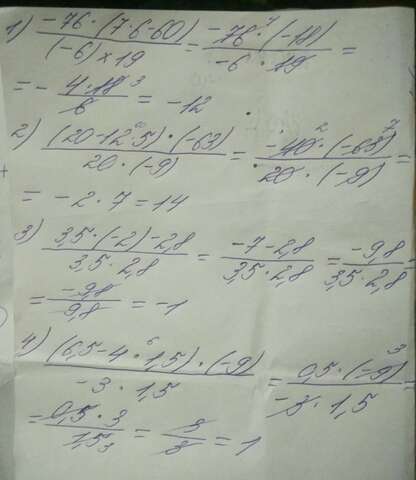 1) -76·(7·6-60) / (-6)×19 = -76·(-18) / -6·19 =
= - 4·18 3 / 6 = -12
2) (20-12·5)·(-63) / 20·(-9) = -40·2(-63)7 / 20·(-9) =
= -2·7 = 14
3) 3,5·(-2)-2,8 / 3,5·2,8 = -7-2,8 / 3,5·2,8 = -9,8 / 3,5·2,8 =
= -9,8 / 9,8 = -1
4) (6,5-4·1,5)·(-9) / -3·1,5 = 0,5·(-9)3 / -3·1,5 =
= 0,5·3 / 1,5 3 = 3 / 3 = 1